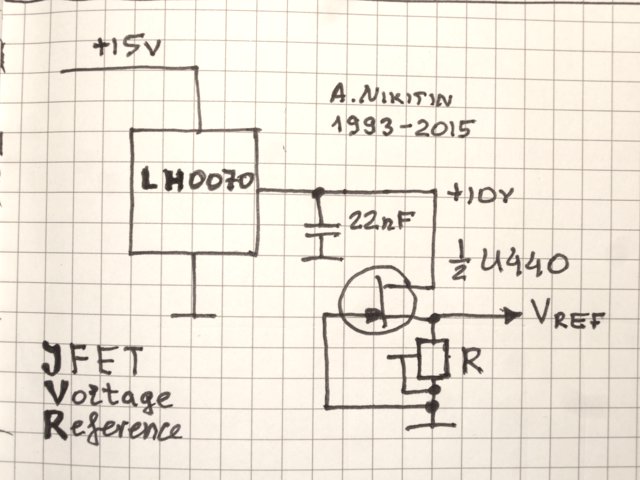 +15V
A. NIKITIN
1993-2015
LH0070
+10V
22nF
½ U440
VREF
R
JFET
Voltage
Reference